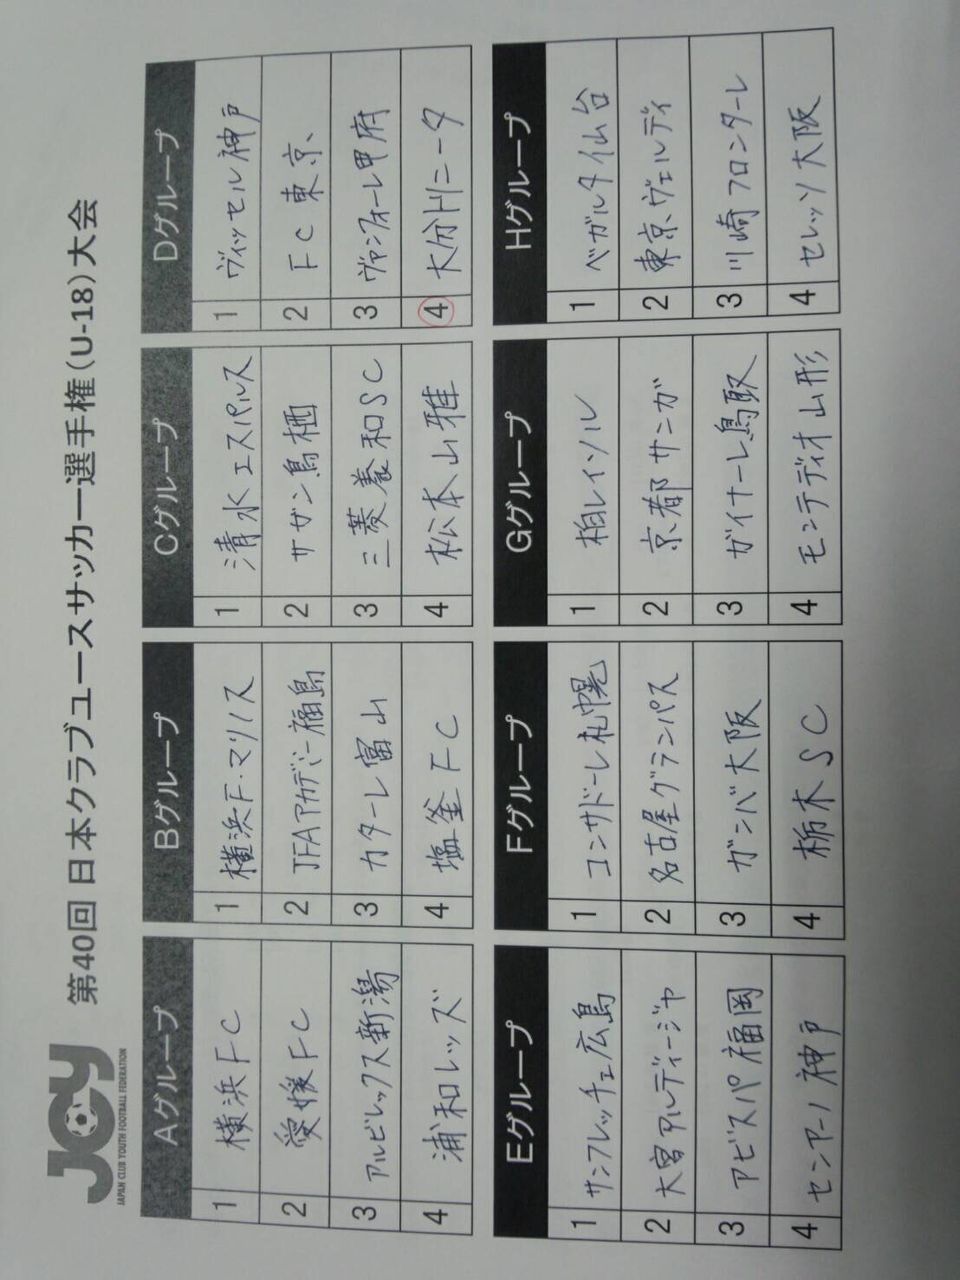 JCY
JAPAN CLUB YOUTH FOOTBALL FEDERATION
第40回 日本クラブユースサッカー選手権(U-18)大会
Aグループ
1 横浜FC
2 愛媛FC
3 アルビレックス新潟
4 浦和レッズ
Bグループ
1 横浜F・マリノス
2 JFAアカデミー福島
3 カターレ富山
4 塩釜FC
Cグループ
1 清水エスパルス
2 サガン鳥栖
3 三菱養和SC
4 松本山雅
Dグループ
1 ヴィッセル神戸
2 FC東京
3 ヴァンフォーレ甲府
4 大分トリニータ
Eグループ
1 サンフレッチェ広島
2 大宮アルディージャ
3 アビスパ福岡
4 センアーノ神戸
Fグループ
1 コンサドーレ札幌
2 名古屋グランパス
3 ガンバ大阪
4 栃木SC
Gグループ
1 柏レイソル
2 京都サンガ
3 ガイナーレ鳥取
4 モンテディオ山形
Hグループ
1 ベガルタ仙台
2 東京ヴェルディ
3 川崎フロンターレ
4 セレッソ大阪